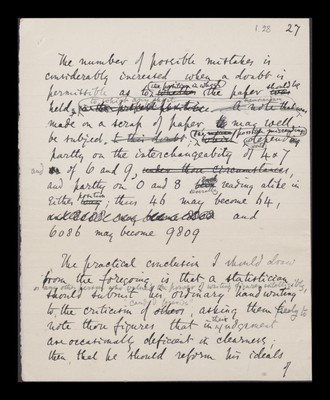 1.28 27
The number of possible mistakes is
considerably increased when a doubt is
permissible as to the position in which the paper should be
held, A note
made on a scrap of paper may well
be subject to this doubt,
partly on the interchangeability of 4 & 7
and of 6 and 9, under those circumstances,
and partly on 0 and 8 reading alike in
either position; thus 46 may become 64,
and
6086 may become 9809
The practical conclusion I should draw
from the foregoing is that a statistician
or any other person who
should submit his ordinary handwriting
to the criticism of others, asking them freely to
note those figures that in their judgement
are occasionally deficient in clearness;
then, that he should reform his ideals
of